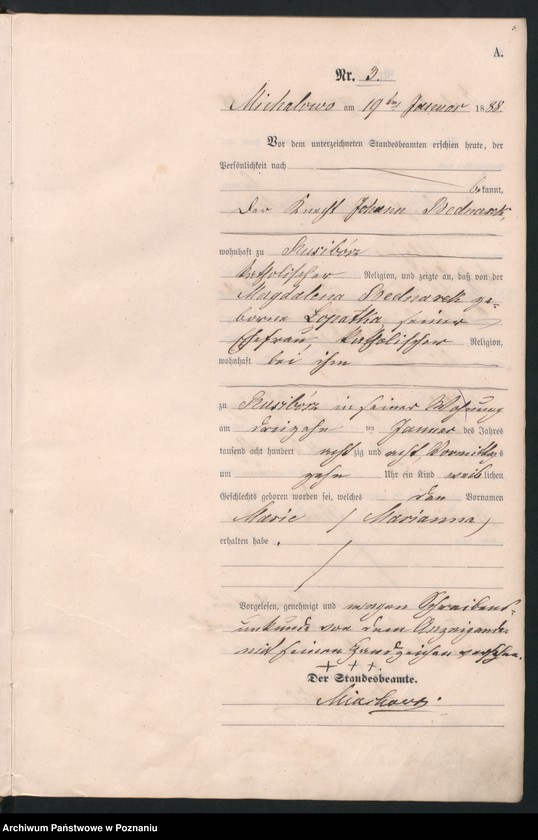 A.
Nr. 3.
Michalowo am 19ten Januar 1888.
Vor dem unterzeichneten Standesbeamten erschien heute, der
Persönlichkeit nach
bekannt,
der Knecht Johann Bednarek,
wohnhaft zu Rusibórz
katholischer Religion, und zeigte an, daß von der
Magdalena Bednarek ge-
borne Lopatka, seiner
Ehefrau, katholischer Religion,
wohnhaft bei ihm
zu Rusibórz in seiner Wohnung
am dreizehn ten Januar des Jahres
tausend acht hundert acht zig und acht, Vormittags
um zehn Uhr ein Kind weiblichen
Geschlechts geboren worden sei, welches den Vornamen
Marie (Marianna)
erhalten habe.
Vorgelesen, genehmigt und wegen Schreibens-
unkunde von dem Anzeigenden
mit seinen Handzeichen versehen.
+ + +
Der Standesbeamte.
Archiwum Państwowe w Poznaniu